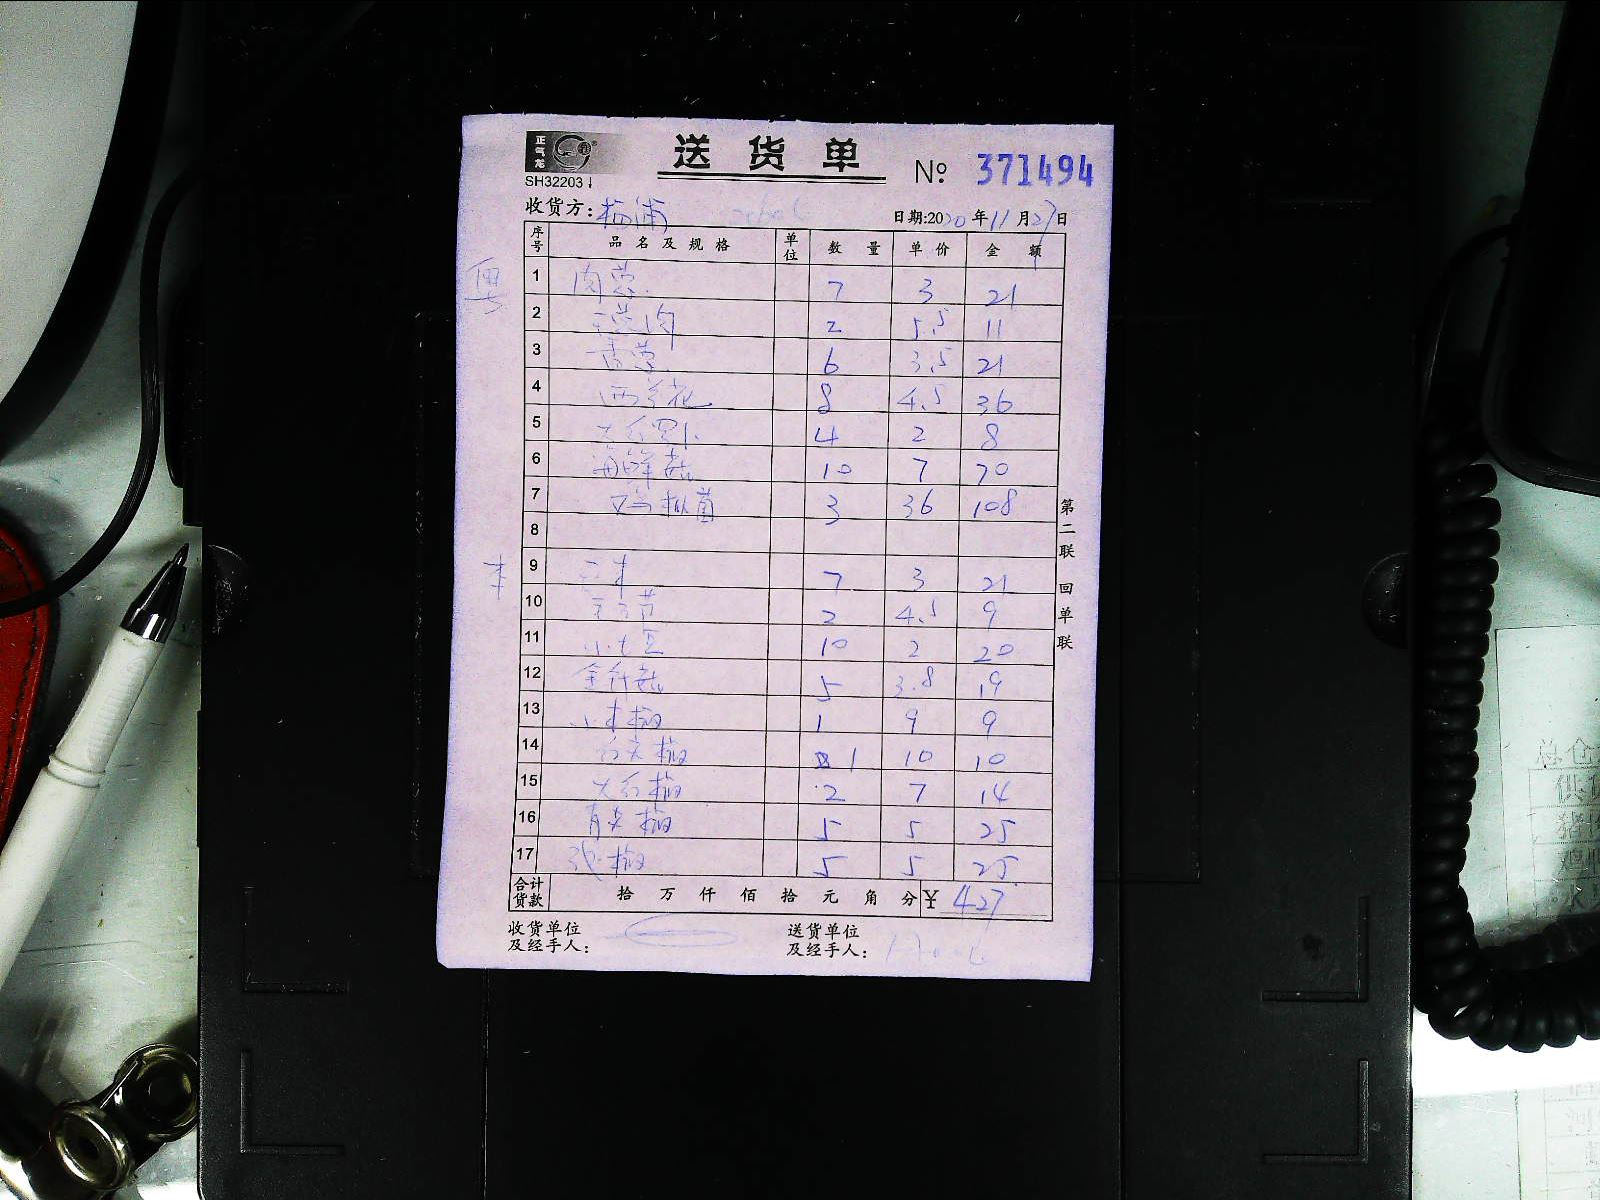 正气龙
送货单 № 371494
SH32203
收货方: 杨浦 日期:2020年11月27日
序号 品名及规格 单位 数量 单价 金额
1 肉葱 7 3 21
2 2 5.5 11
3 香葱 6 3.5 21
4 西兰花 8 4.5 36
5 大红萝卜 4 2 8
6 海鲜菇 10 7 70
7 鸡枞菌 3 36 108
8
9 7 3 21
10 2 4.5 9
11 小土豆 10 2 20
12 金针菇 5 3.8 19
13 小米椒 1 9 9
14 1 10 10
15 大红椒 2 7 14
16 青尖椒 5 5 25
17 椒 5 5 25
合计货款 拾 万 仟 佰 拾 元 角 分 ¥ 427
收货单位及经手人:
送货单位及经手人:
第二联 回单联